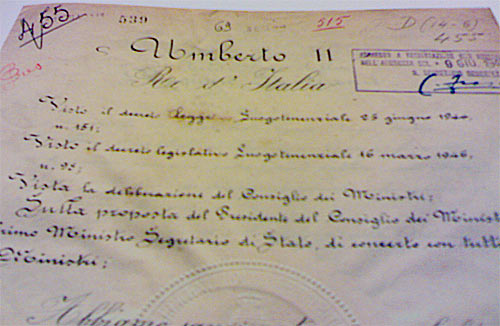 455
539
69
515
D (14-6)
455
Umberto II
Re d'Italia
Bis
Visto il decreto legge Luogotenenziale 25 giugno 1944,
n. 151;
Visto il decreto legislativo Luogotenenziale 16 marzo 1946,
n. 98;
Vista la deliberazione del Consiglio dei Ministri;
Sulla proposta del Presidente del Consiglio dei Minist
rimo Ministro Segretario di Stato, di concerto con tutt
Ministri;
Abbiamo